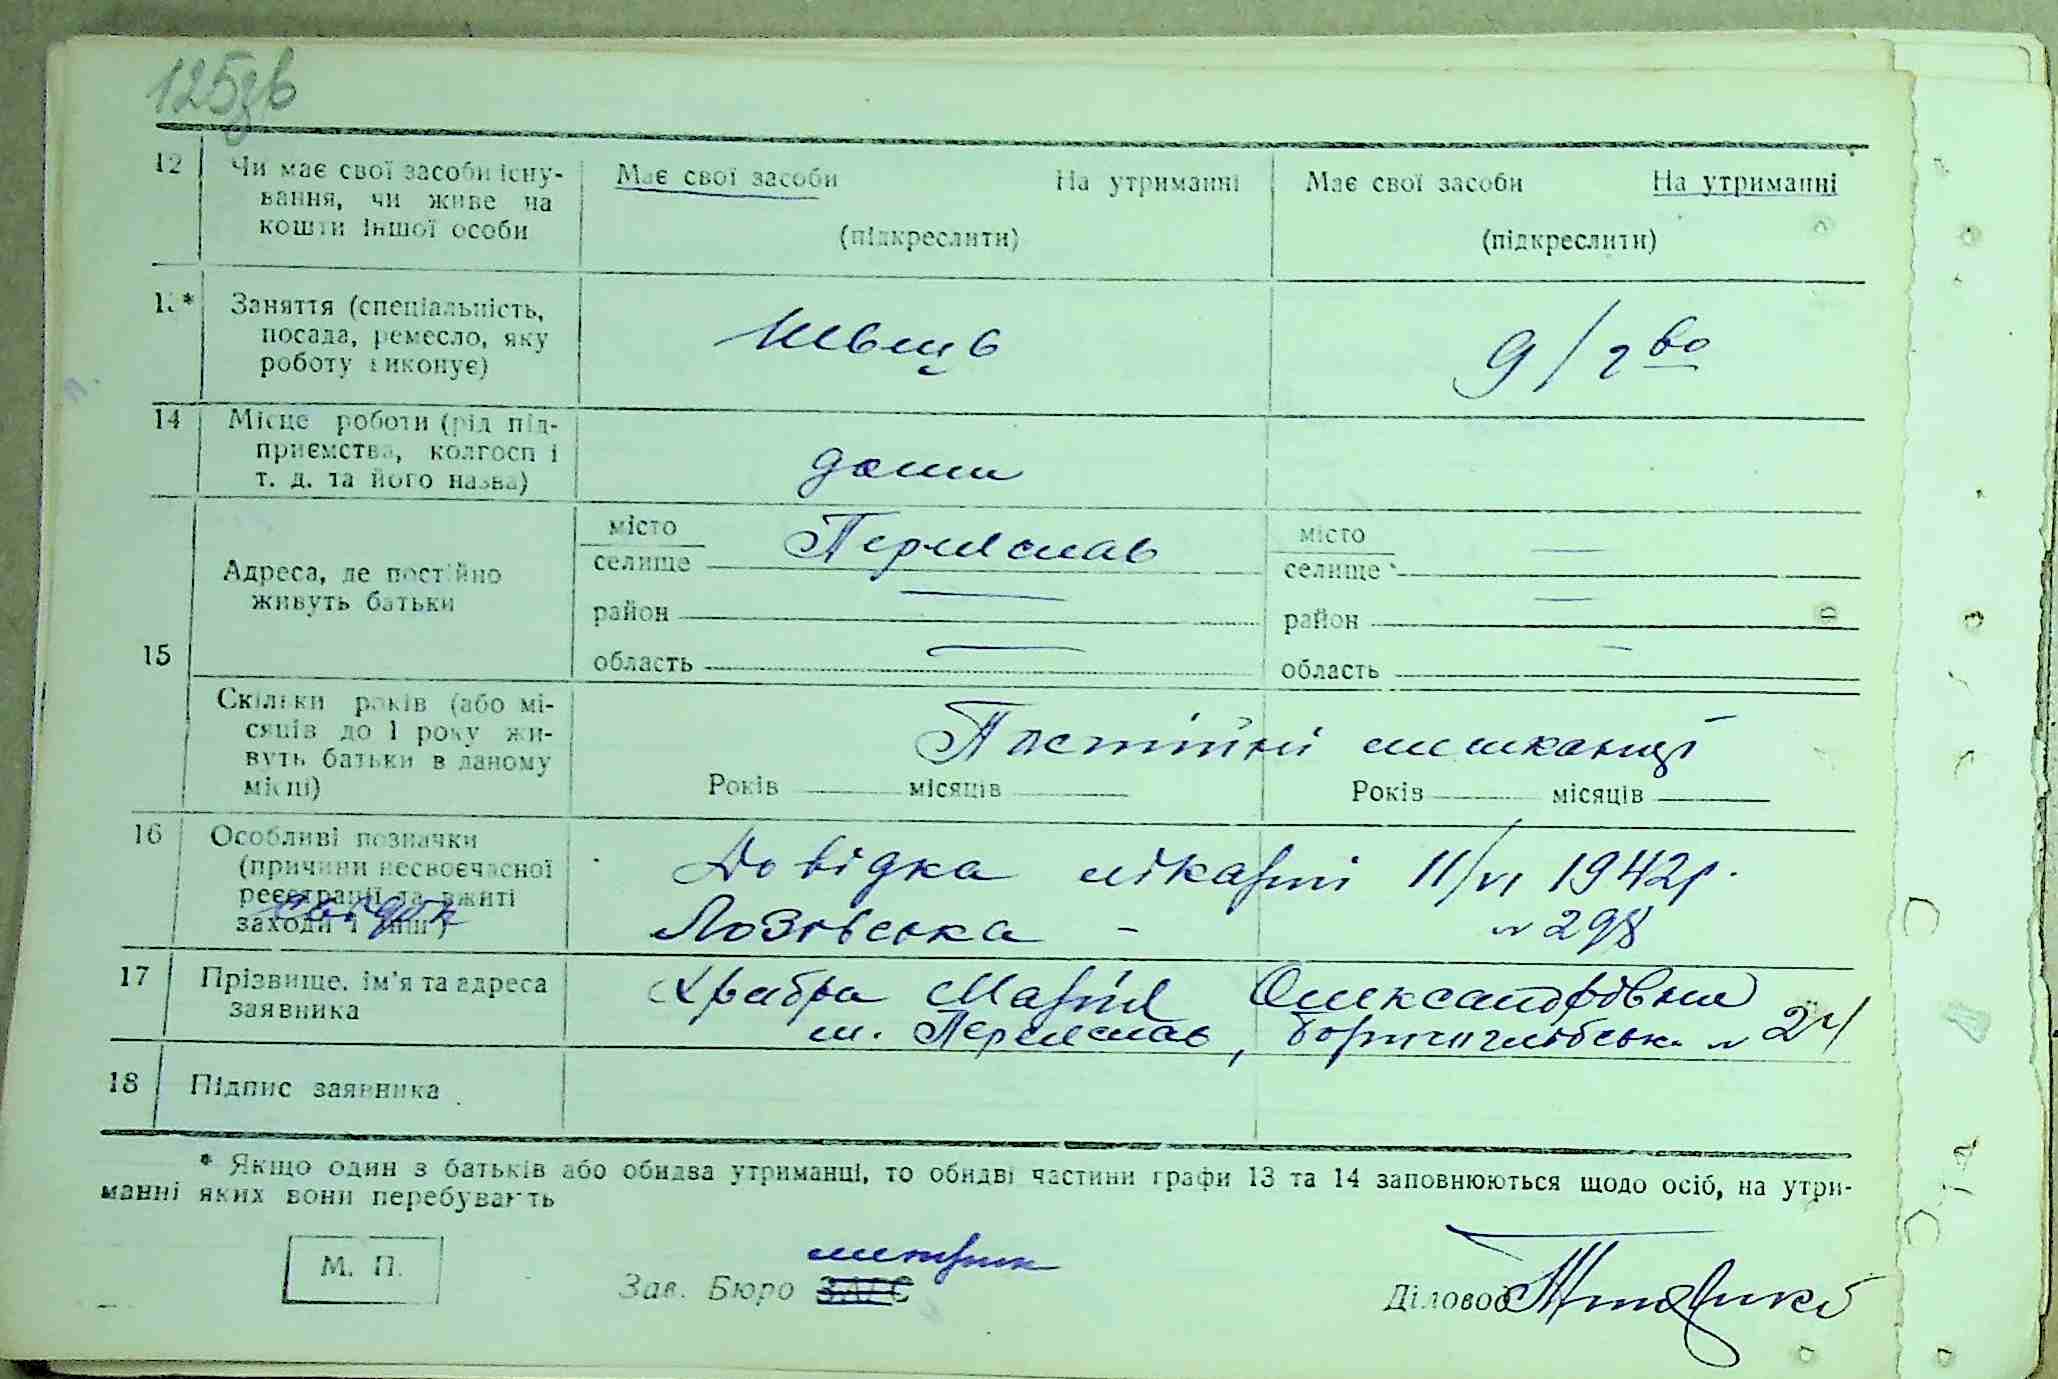 125зв
12 Чи має свої засоби існу- Має свої засоби На утриманні Має свої засоби На утриманні
вання, чи живе на
кошти іншої особи (підкреслити) (підкреслити)
13* Заняття (спеціальність,
посада, ремесло, яку швець д/гво
роботу виконує)
14 Місце роботи (рід під-
приємства, колгосп і дома
т. д. та його назва)
місто Переяслав місто —
Адреса, де постійно селище селище
живуть батьки район — район —
15 область — область —
Скільки років (або мі-
сяців до 1 року жи- Постійні мешканці
вуть батьки в даному
місці) Років місяців Років місяців
16 Особливі позначки
(причини несвоєчасної Довідка лікарні 11/VI 1942р.
реєстрації та вжиті
заходи і інш.) Лозовська – № 298
17 Прізвище, ім'я та адреса Храбра Марія Олександрівна
заявника м. Переяслав, Боришглібськ. № 24
18 Підпис заявника
* Якщо один з батьків або обидва утриманці, то обидві частини графи 13 та 14 заповнюються щодо осіб, на утри-
манні яких вони перебувають
метрик
М. П. Зав. Бюро ЗАГС Діловод